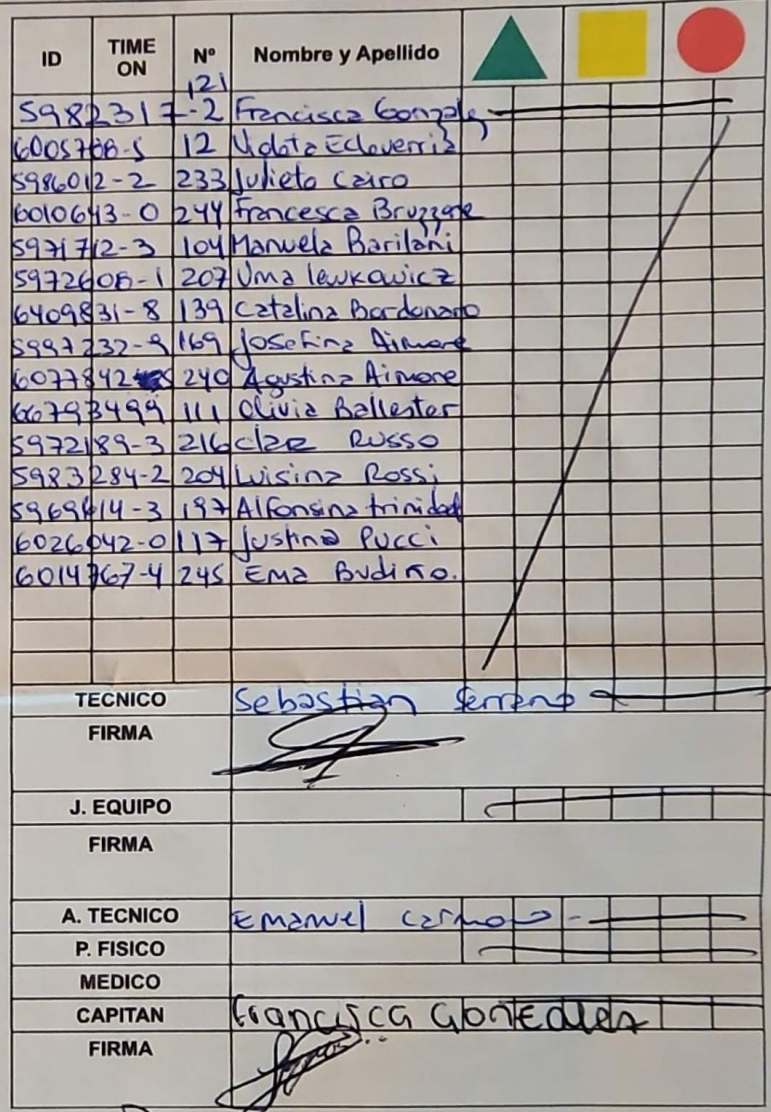 ID TIME ON Nº Nombre y Apellido
121
5982317-2 Francisca Gonzalez
6005708-5 12 Violeta Echeverria
5986012-2 233 Julieta Cairo
6010643-0 244 Francesca Bruzzone
5971712-3 104 Manuela Barilani
5972608-1 207 Uma lewkowicz
6409831-8 139 Catalina Bordonaro
5997232-9 169 Josefina Aimore
6077842 240 Agustina Aimore
66793499 111 Olivia Ballester
5972189-3 216 Russo
5983284-2 204 Luisina Rossi
5969414-3 197 Alfonsina trinidad
6026042-0 117 Justina Pucci
6014767-4 245 Ema Budiño.
TECNICO Sebastian Serrano
FIRMA
J. EQUIPO
FIRMA
A. TECNICO Emanuel
P. FISICO
MEDICO
CAPITAN Francisca Gonzalez
FIRMA